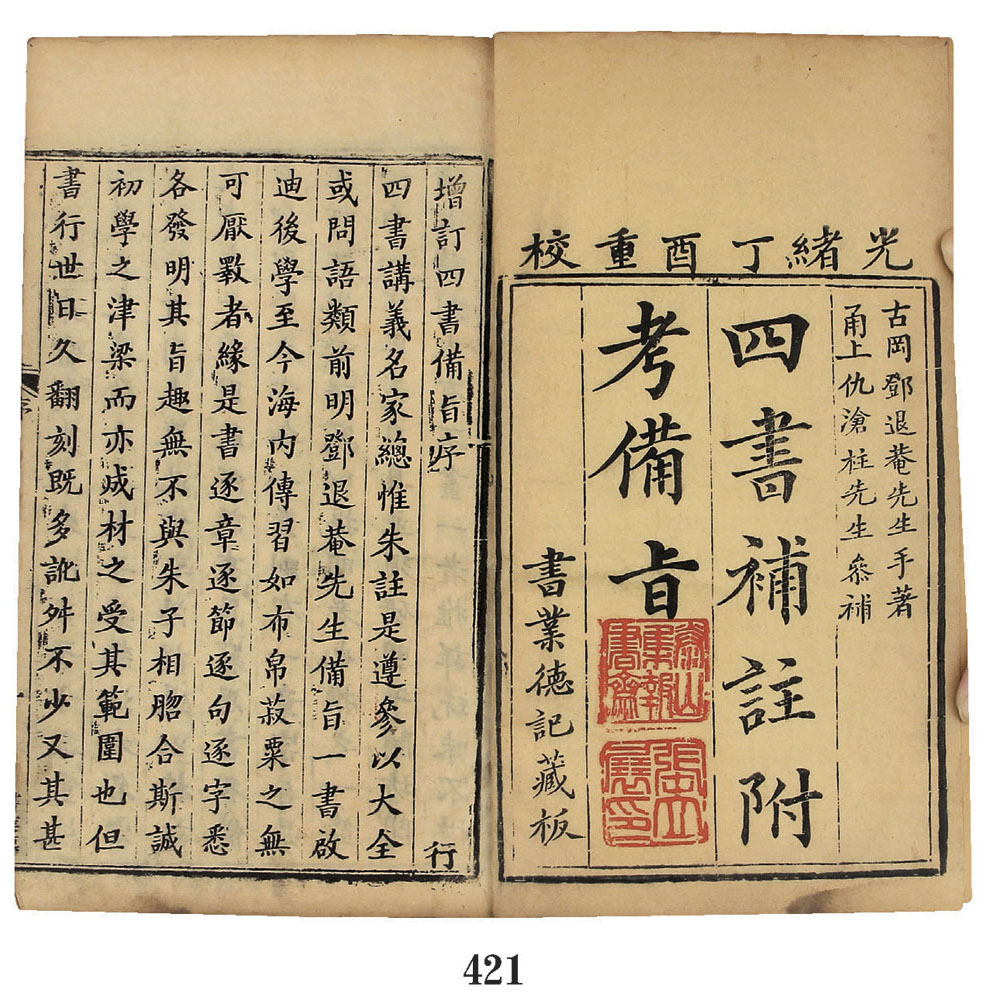 光緒丁酉重校
古岡鄧退菴先生手著
甬上仇滄柱先生參補
四書補註附
考備旨
書業德記藏板
增訂四書備旨序
行
四書講義名家總惟朱註是遵參以大全
或問語類前明鄧退菴先生備旨一書啟
迪後學至今海內傳習如布帛菽粟之無
可厭斁者緣是書逐章逐節逐句逐字悉
各發明其旨趣無不與朱子相脗合斯誠
初學之津梁而亦成材之受其範圍也但
書行世日久翻刻既多訛舛不少又其甚
421